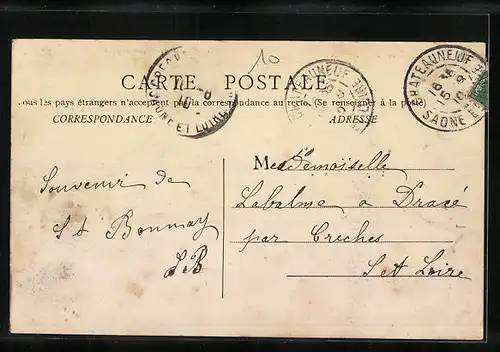 10
CARTE POSTALE
ous les pays étrangers n'acceptent la correspondance au recto. (Se renseigner à la poste)
CORRESPONDANCE ADRESSE
CHATEAUNEUF
SAONE E
SAONE ET LOIRE
CHATEAUNEUF
Souvenir de
St Bonnay
JB
Mademoiselle
Labalme a Dracé
par Creches
S et Loire